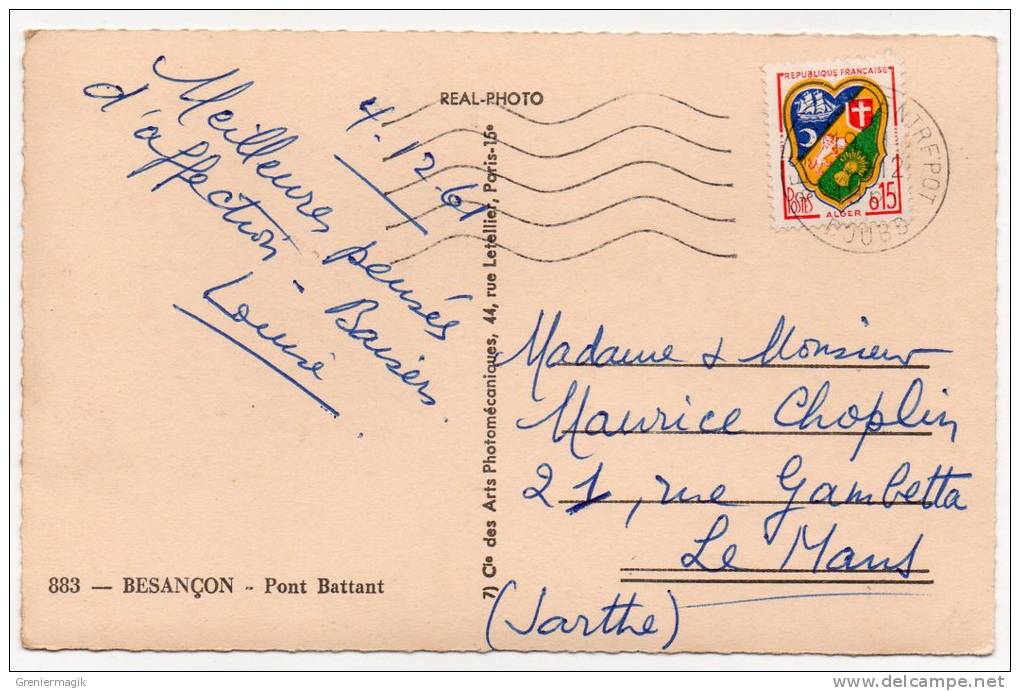 REAL-PHOTO
4-12-61
Meilleures pensés
d'affection -
Baisers.
Louise
REPUBLIQUE FRANÇAISE
POSTES
0F15
ALGER
ENTREPOT
DOUBS
Madame & Monsieur
Maurice Choplin
21, rue Gambetta
Le Mans
(Sarthe)
7) Cie des Arts Photomécaniques, 44, rue Letellier, Paris-15e
883 — BESANÇON - Pont Battant
Greniermagik
www.delcampe.net